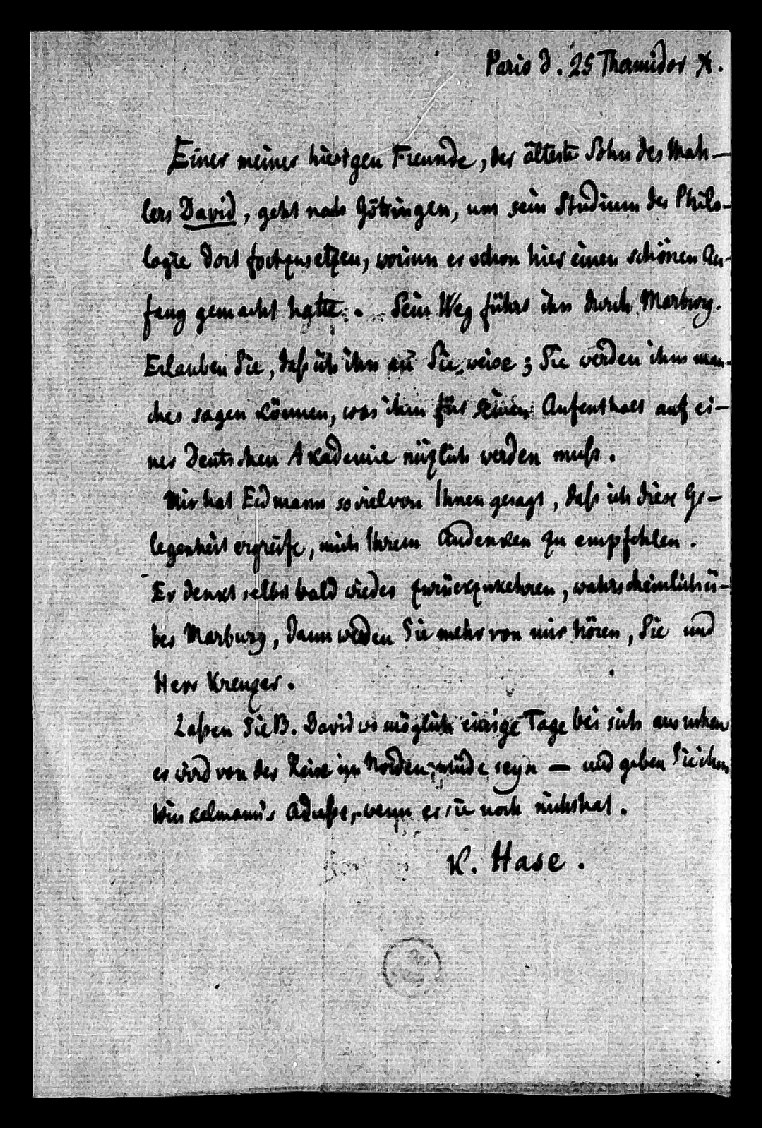 Paris d. 25 Thermidor X.
Einer meiner hiesigen Freunde, der älteste Sohn des Mah-
lers David, geht nach Göttingen, um sein Studium der Philo-
logie dort fortzusetzen, worinn er schon hier einen schönen An-
fang gemacht hatte. Sein Weg führt ihn durch Marburg.
Erlauben Sie, daß ich ihn an Sie weise; Sie werden ihm man-
ches sagen können, was ihm für seinen Aufenthalt auf ei-
ner Deutschen Akademie nüzlich werden muß.
Mir hat Erdmann so viel von Ihnen gesagt, daß ich diese Ge-
legenheit ergreife, mich Ihrem Andenken zu empfehlen.
Er denkt selbst bald wieder zurückzukehren, wahrscheinlich ü-
ber Marburg, dann werden Sie mehr von mir hören, Sie und
Herr Kreuzer.
Laßen Sie B. David wo möglich einige Tage bei sich ausruhen
es wird von der Reise im Norden müde seyn — und geben Sie ihm
Winkelmann's Adreße, wenn er sie noch nicht hat.
K. Hase.